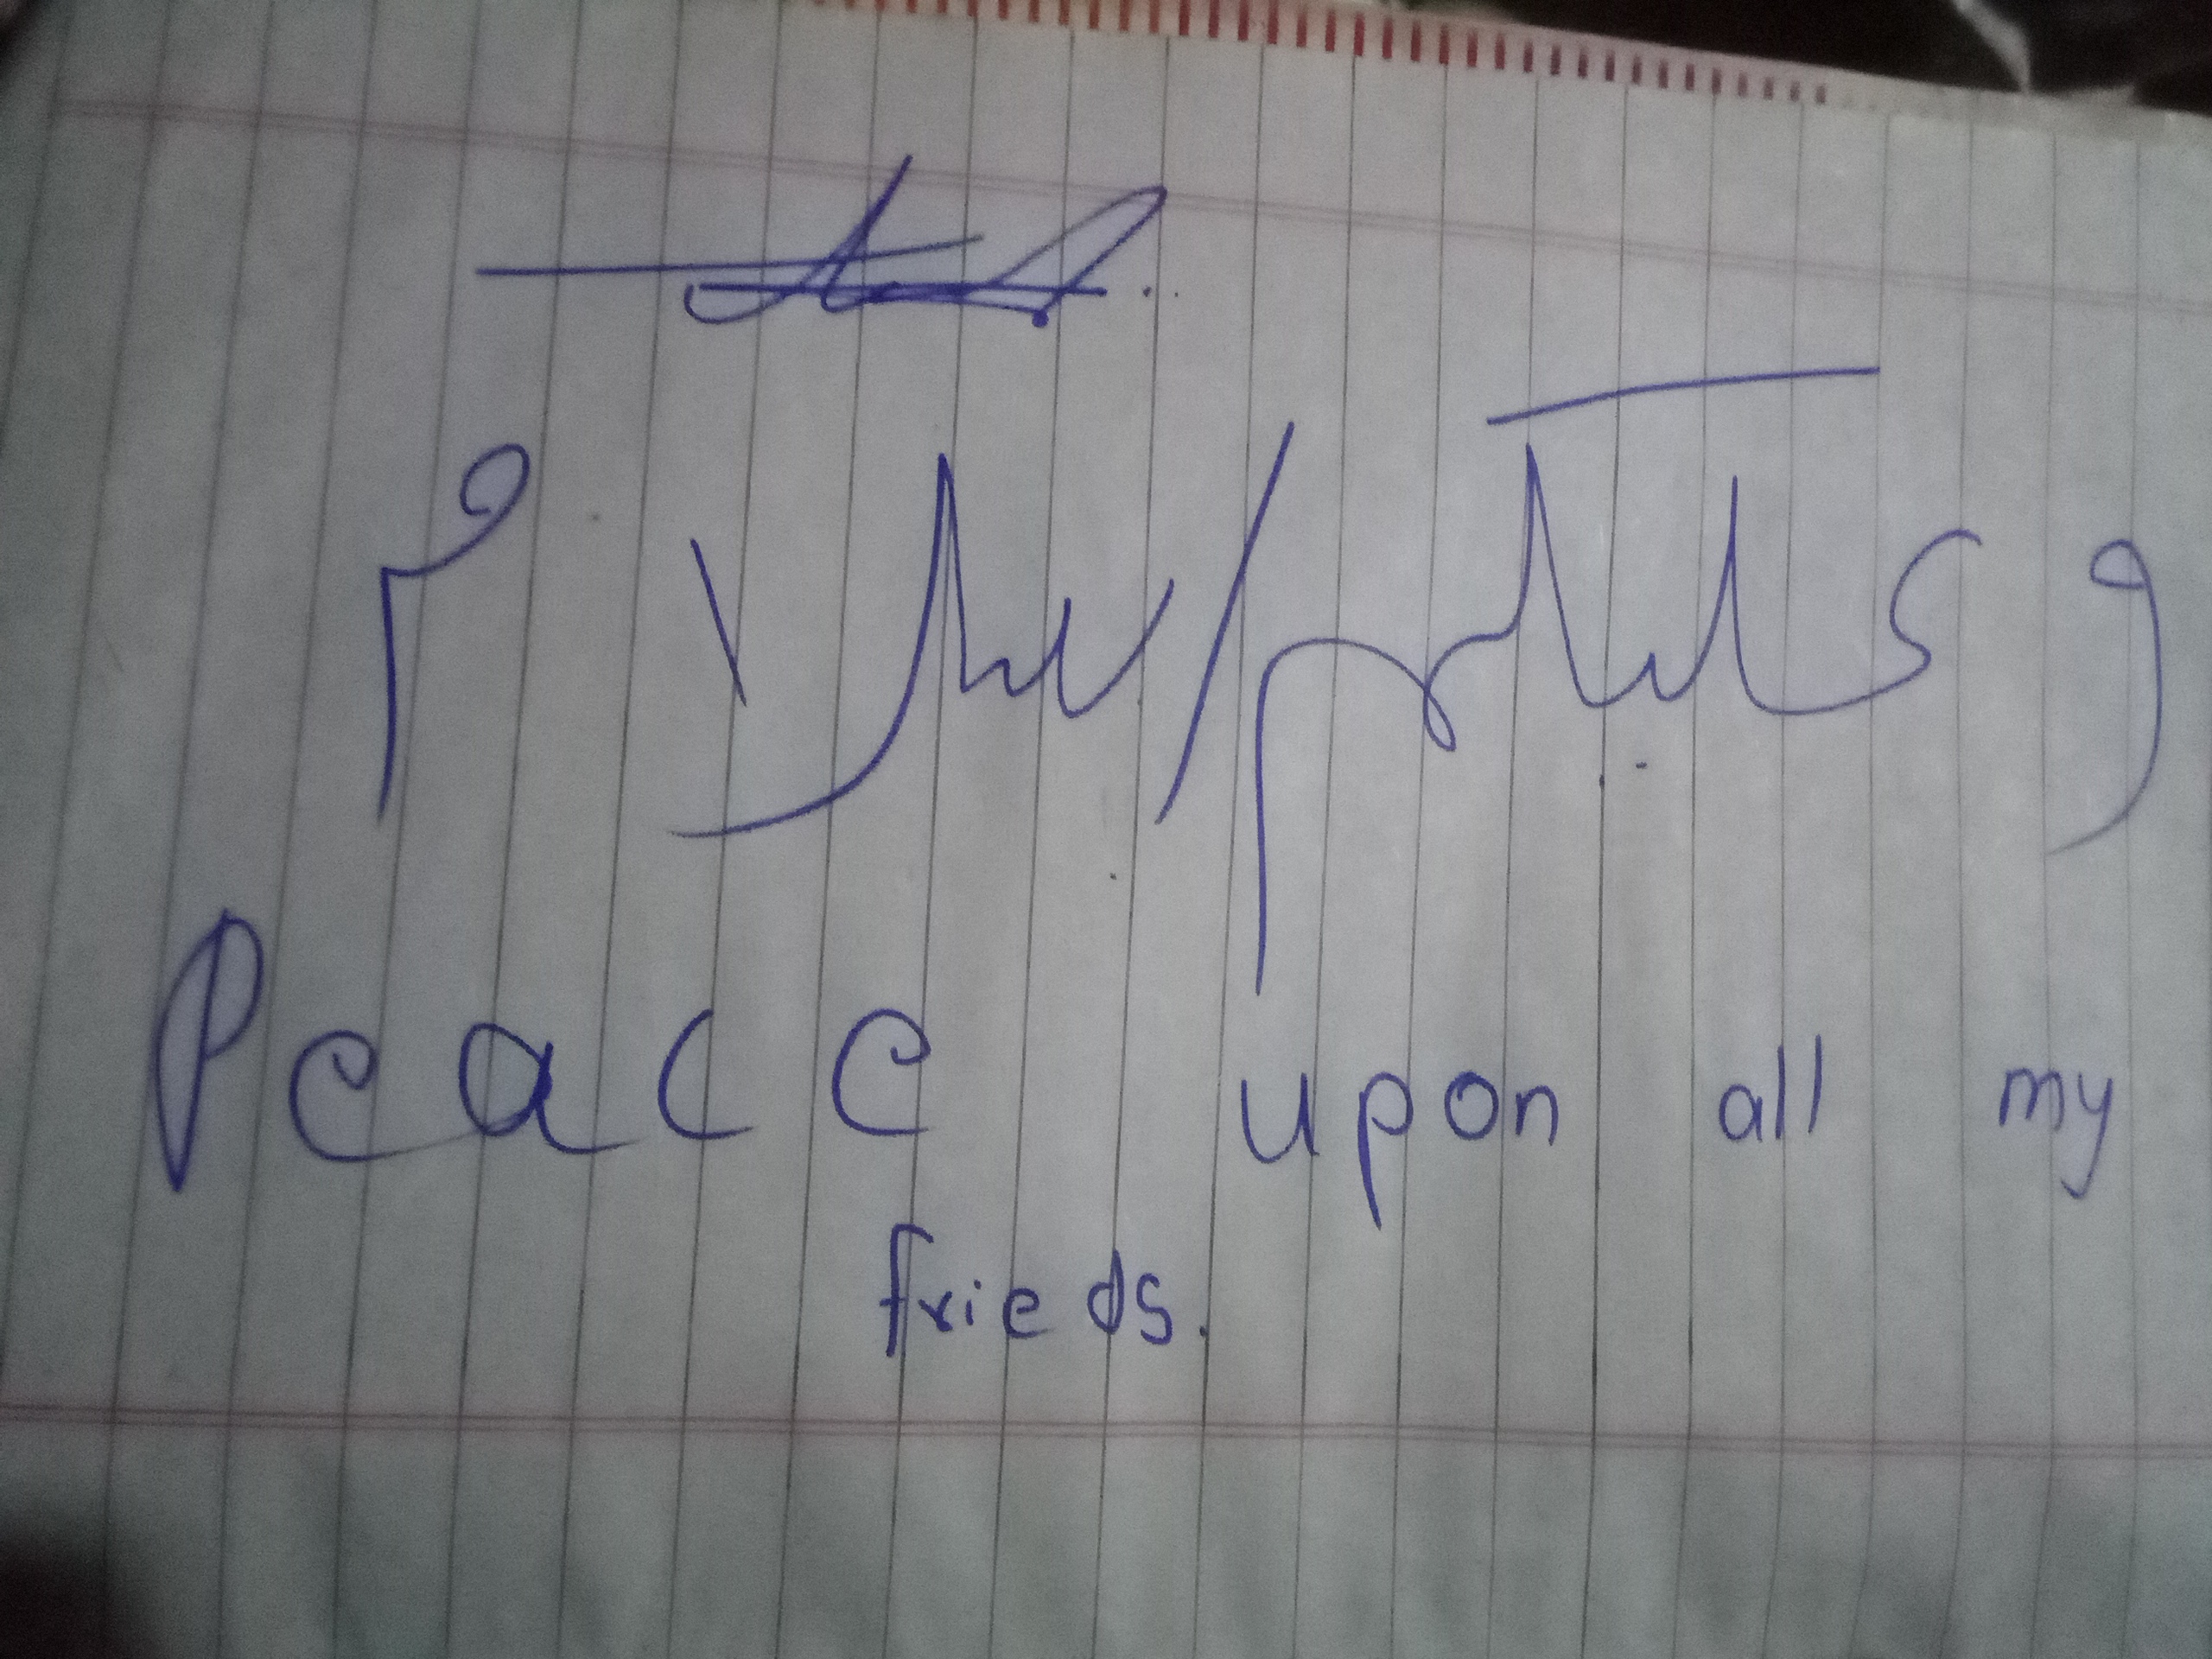 وعلیکم السلام
Peace upon all my
frieds.